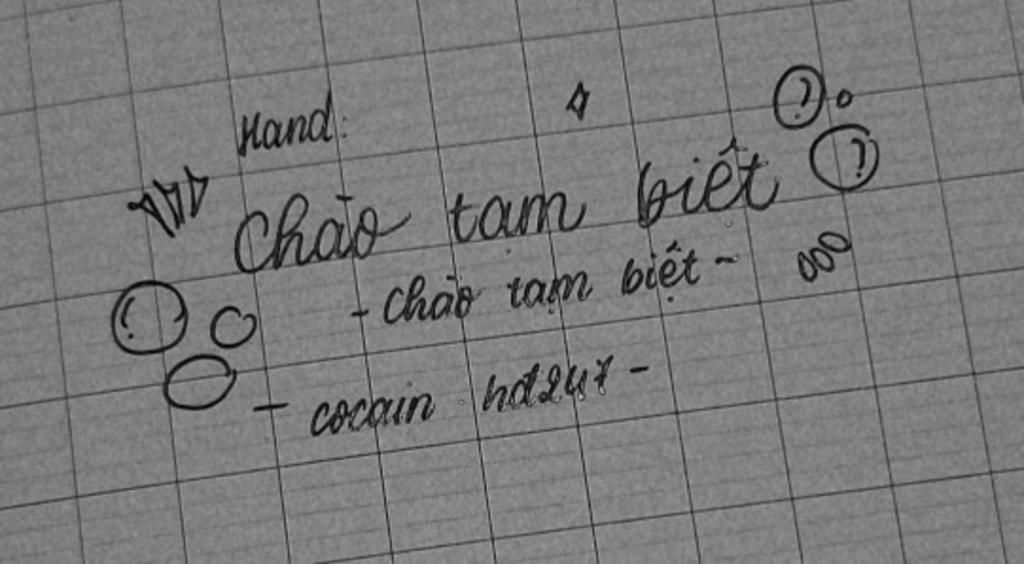 Hand:
Chào tạm biết
- Chào tạm biệt -
- cocain hd247 -